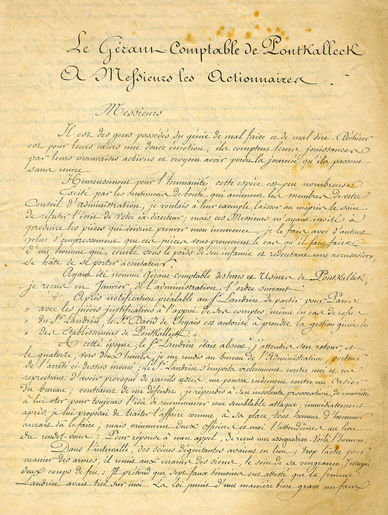 Le Gérant Comptable de Pontkalleck
A Messieurs les Actionnaires.
Messieurs
Il est des gens possédés du génie de mal faire et de mal dire. Déchirer
est pour leurs cœurs une douce émotion; ils comptent leurs jouissances
par leurs mauvaises actions et croyent avoir perdu la journée qu'ils passent
sans nuire.
Heureusement pour l'humanité, cette espèce est peu nombreuse.
Excité par les sentimens de bonté qui animent les membres de votre
Conseil d'Administration, je voulais à leur exemple, laisser au mépris le soin
de réfuter l'écrit de votre ex-directeur; mais ces Messieurs m'ayant invité à
produire les pièces qui doivent prouver mon innocence, je le fais avec d'autant
plus d'empressement que ces pièces vous prouveront le cas qu'il faut faire
d'un homme qui, courbé sous le poids de son infamie et redoutant une accusation,
se hâte de se porter accusateur.
Ayant été nommé Gérant Comptable des forges et Usines de Pontkalleck
je reçus en Janvier, de l'administration, l'ordre suivant:
"Après notification préalable au Sr Landrin de partir pour Paris
"avec les pièces justificatives à l'appui de ses comptes, même en cas de refus
"du Sr Landrin, le Sr David de est autorisé à prendre la gestion générale
"des Etablissemens de Pontkalleck."
A cette époque, le Sr Landrin étant absent, j'attendis son retour, et
le quatorze, vers deux heures, je me rendis au bureau de l'Administration, porteur
de l'arrêté ci-dessus énoncé; le Sr Landrin s'emporta violemment contre moi et me
reprochant d'avoir provoqué de pareils ordres, me poussa rudement contre un Casier
du Bureau; contraint de me défendre, je répondis à son insolente provocation, de manière
à lui ôter pour toujours l'idée de recommencer une semblable attaque; immédiatement
après, je lui proposai de traiter l'affaire comme à sa place tout homme d'honneur
aurait dû le faire; mais vainement deux officiers et moi l'attendîmes au lieu
du rendez-vous. Pour réponse à mon appel, je reçus une assignation. Voilà l'homme.
Dans l'intervalle, des scènes dégoutantes avaient eu lieu; trop lâche pour
manier des armes, il remit aux mains des siens, le soin de sa vengeance, J'essuyai
deux coups de feu; Il prétend que sept faux témoins ont attesté que la femme
Landrin avait tiré sur moi. La loi punit d'une manière bien grave un faux